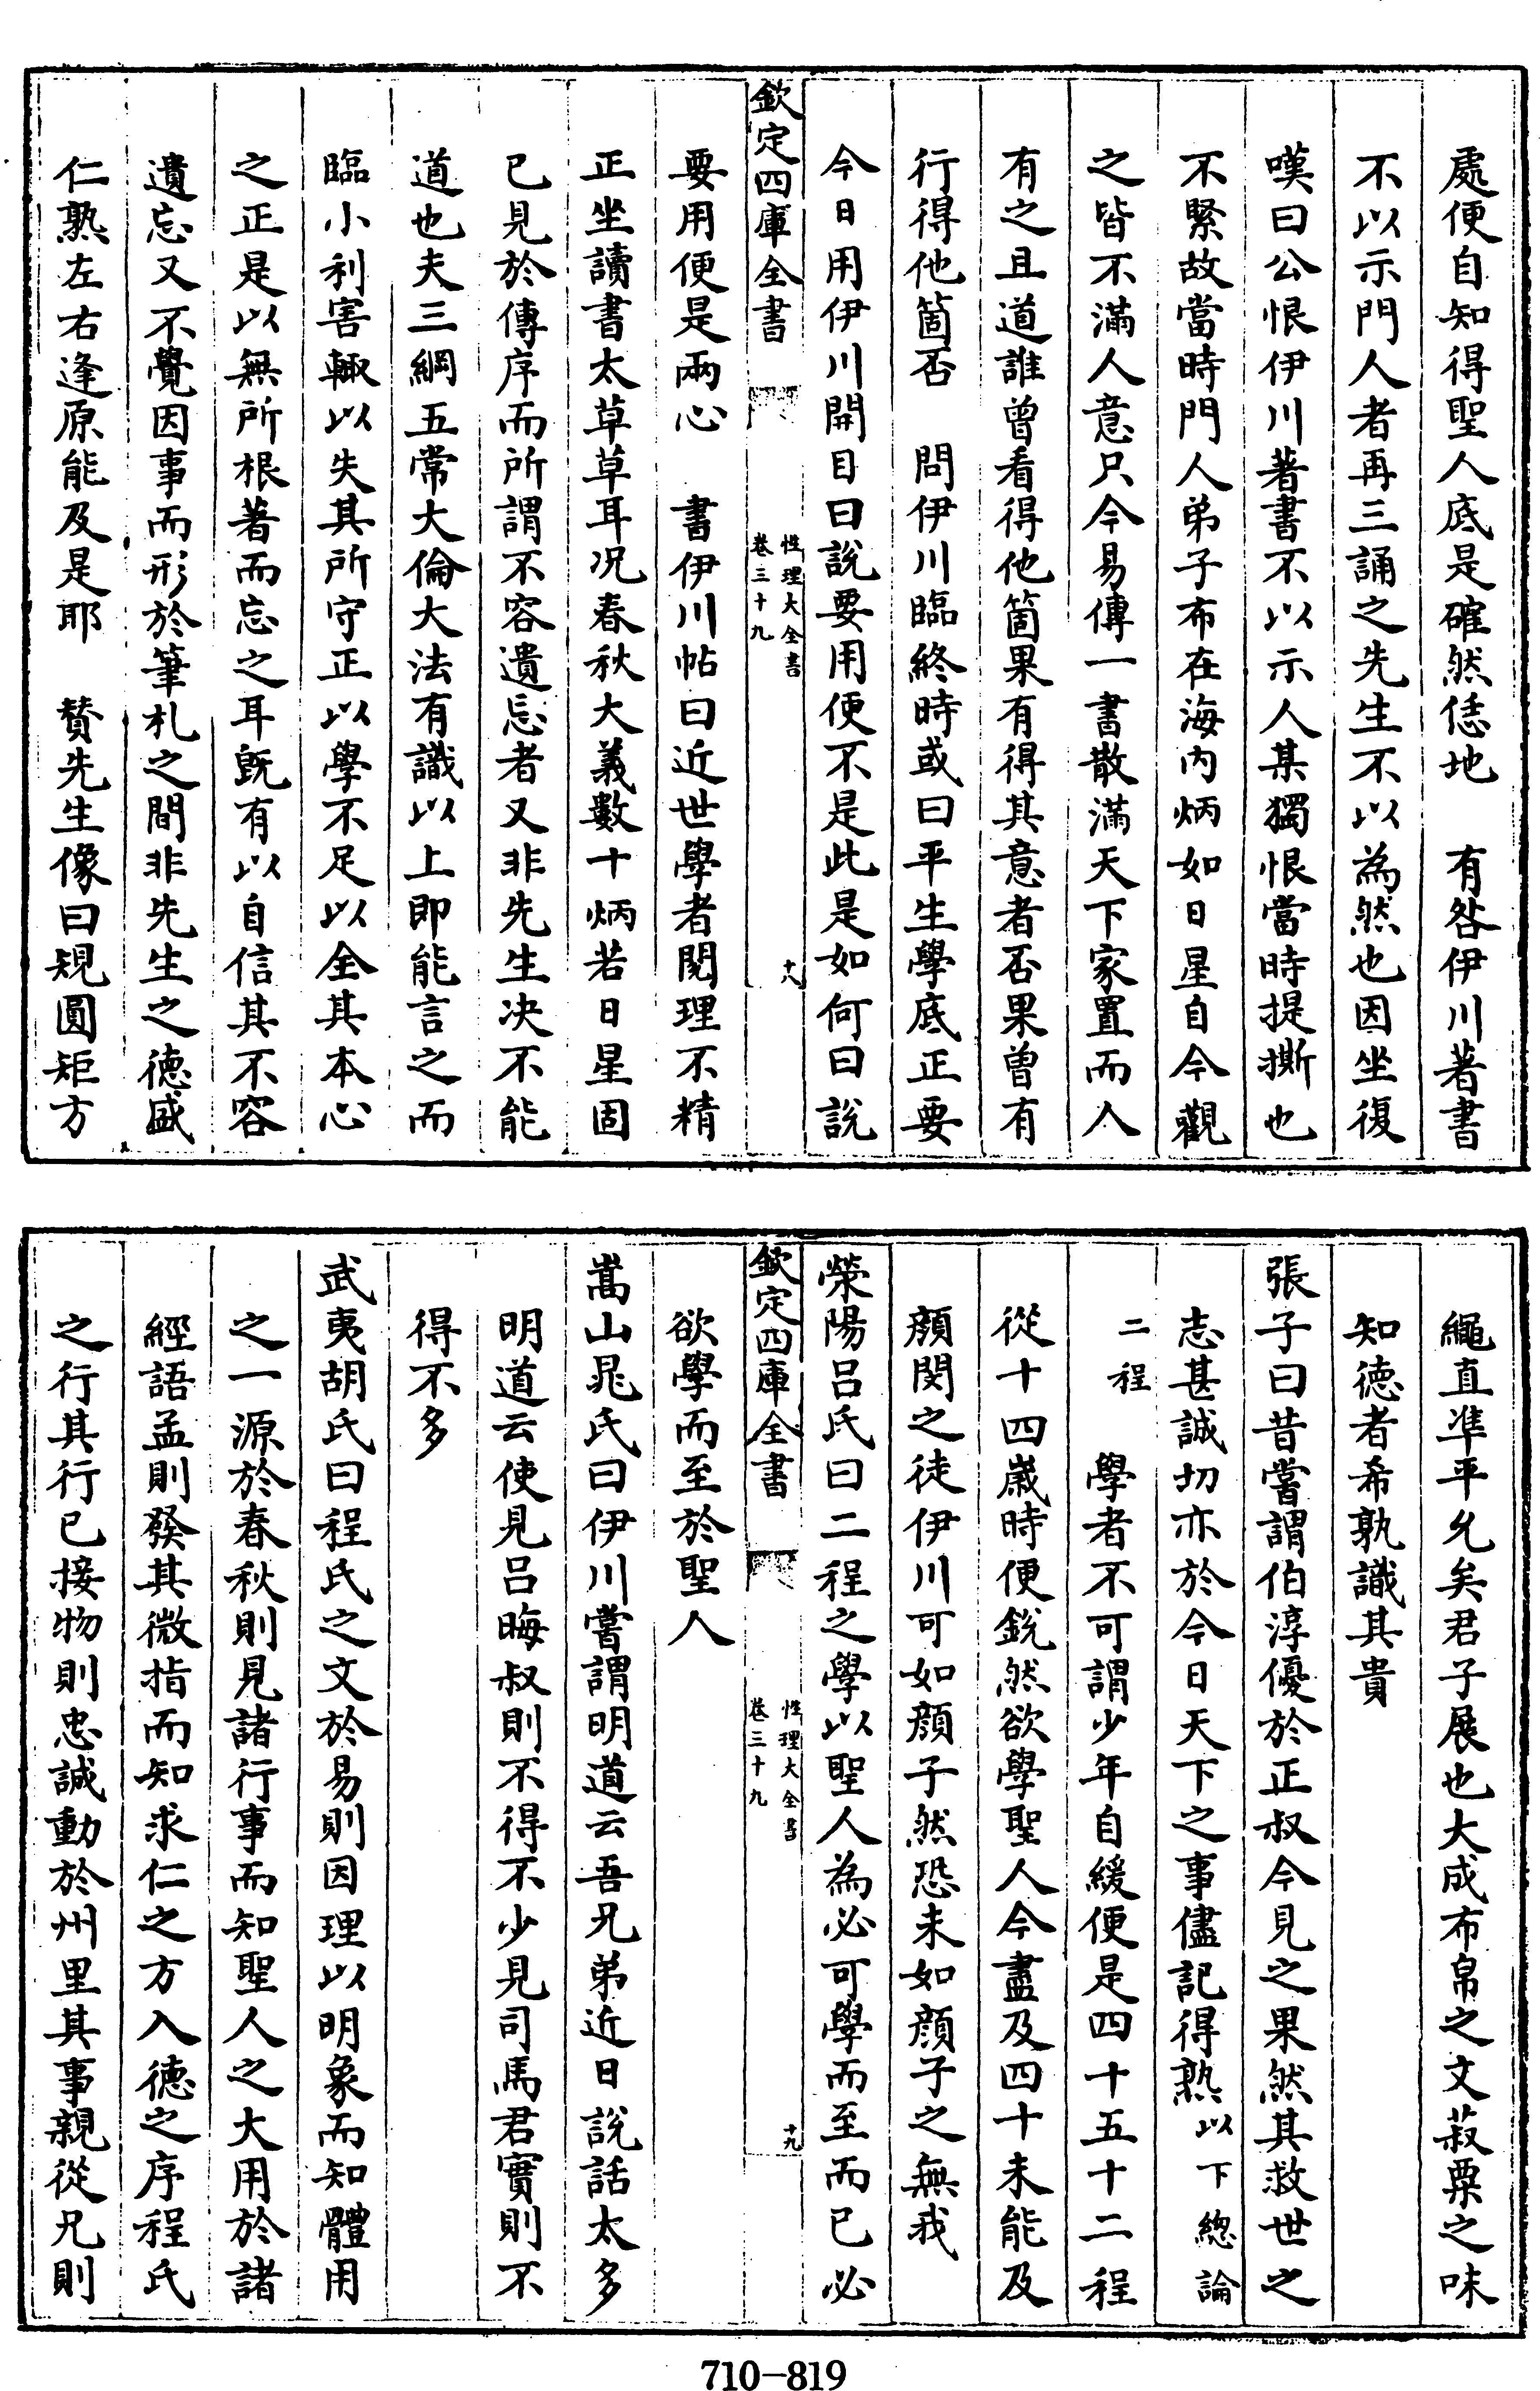 處便自知得聖人底是確然恁地　有咎伊川著書
不以示門人者再三誦之先生不以為然也因坐復
嘆曰公恨伊川著書不以示人某獨恨當時提撕也
不緊故當時門人弟子布在海内炳如日星自今觀
之皆不滿人意只今易傳一書散滿天下家置而人
有之且道誰曽看得他箇果有得其意者否果曽有
行得他箇否　問伊川臨終時或曰平生學底正要
今日用伊川開目曰說要用便不是此是如何曰說
欽定四庫全書
性理大全書
卷三十九
十八
要用便是兩心　書伊川帖曰近世學者閱理不精
正坐讀書太草草耳况春秋大義數十炳若日星固
已見於傳序而所謂不容遺忘者又非先生决不能
道也夫三綱五常大倫大法有識以上即能言之而
臨小利害輙以失其所守正以學不足以全其本心
之正是以無所根著而忘之耳旣有以自信其不容
遺忘又不覺因事而形於筆札之間非先生之德盛
仁熟左右逢原能及是耶　贊先生像曰規圓矩方
繩直凖平允矣君子展也大成布帛之文菽粟之味
知德者希孰識其貴
張子曰昔嘗謂伯淳優於正叔今見之果然其救世之
志甚誠切亦於今日天下之事儘記得熟以下總論
二程　學者不可謂少年自緩便是四十五十二程
從十四歳時便銳然欲學聖人今盡及四十未能及
顔閔之徒伊川可如顔子然恐未如顔子之無我
滎陽呂氏曰二程之學以聖人為必可學而至而已必
欽定四庫全書
性理大全書
卷三十九
十九
欲學而至於聖人
嵩山晁氏曰伊川嘗謂明道云吾兄弟近日說話太多
明道云使見呂晦叔則不得不少見司馬君實則不
得不多
武夷胡氏曰程氏之文於易則因理以明象而知體用
之一源於春秋則見諸行事而知聖人之大用於諸
經語孟則發其微指而知求仁之方入德之序程氏
之行其行已接物則忠誠動於州里其事親從兄則
710-819